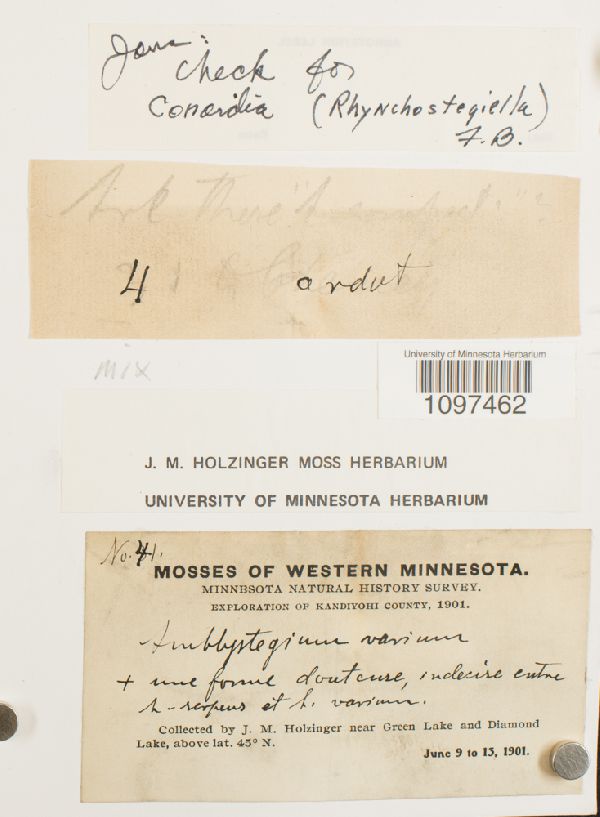 Jan:
check for
Conardia (Rhynchostegiella)
F.B.
Ask there
4 ordut
mix
University of Minnesota Herbarium
1097462
J. M. HOLZINGER MOSS HERBARIUM
UNIVERSITY OF MINNESOTA HERBARIUM
No. 41.
MOSSES OF WESTERN MINNESOTA.
MINNESOTA NATURAL HISTORY SURVEY.
EXPLORATION OF KANDIYOHI COUNTY, 1901.
Amblystegium varium
+ une forme douteuse, indecise entre
h. serpens et h. varium.
Collected by J. M. Holzinger near Green Lake and Diamond
Lake, above lat. 45° N.
June 9 to 15, 1901.